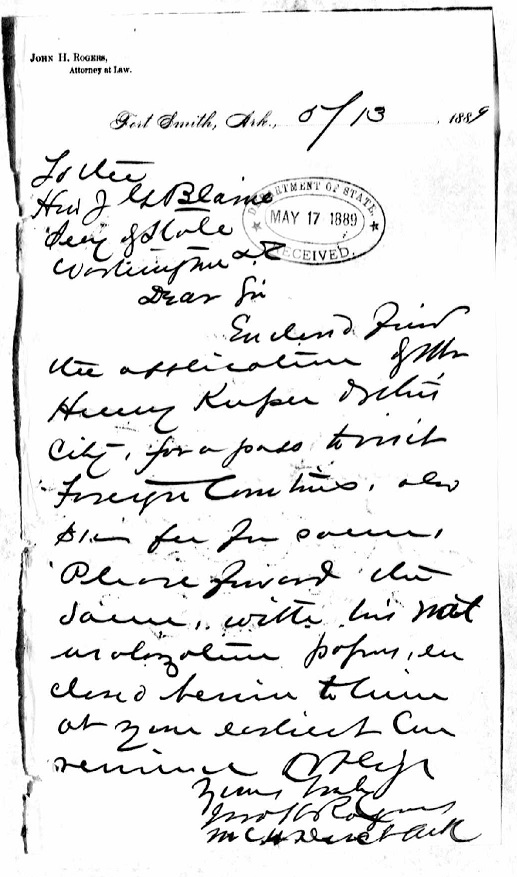 JOHN H. ROGERS,
Attorney at Law.
Fort Smith, Ark., 5/13 1889
To the
Hon J G Blaine
Secy of State
Washington D.C.
DEPARTMENT OF STATE.
MAY 17 1889
RECEIVED.
Dear Sir
Enclosed Find
the application of Mr
Henry Kuper of this
City, for a pass to visit
Foreign Countries, also
fee for same,
Please forward the
same, with his nat
uralization papers, en
closed herein to him
at your earliest Con
venience
Yours truly
Jno H Rogers
M C 4 Dist Ark